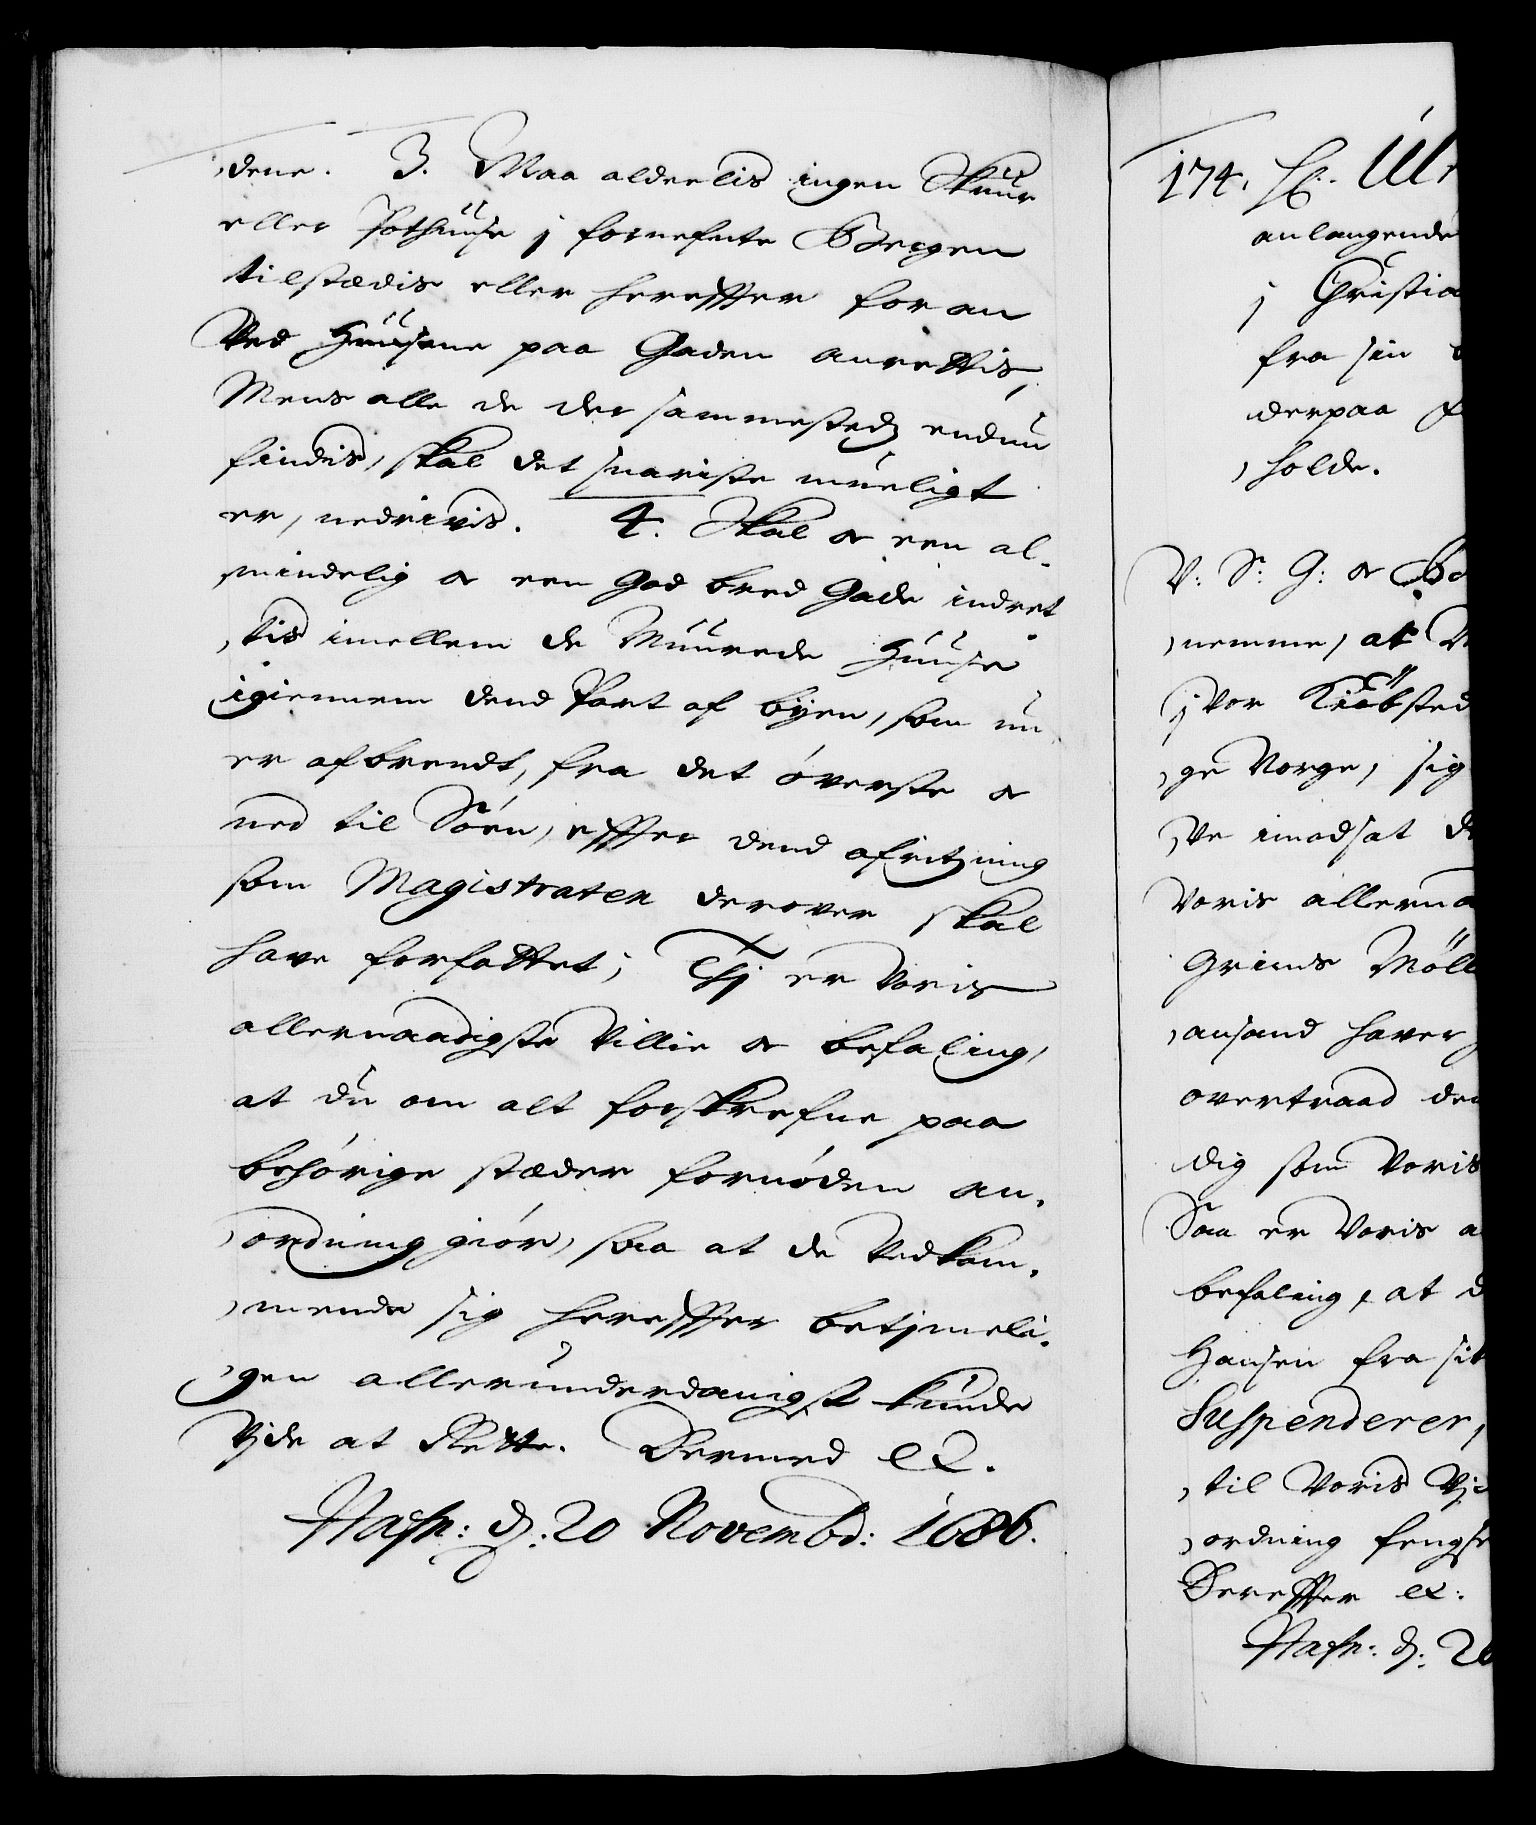 dene. 3. Maa alderlis ingen Skuur
eller Pothuuse j fornefnte Bergen
tilstædis eller herefter foran
ved Huusene paa Gaden anrettis,
Mens alle de der sammesteds endnu
findis, skal det snariste mueligt
er, nedrivis. 4. Skal oc een al-
mindelig oc een God bred Gade indret
tis imellem de Muurede Huuse
igiennem dend Part af byen, som nu
er afbrendt, fra det överste oc
ned til Söen, efter dend afritzning
som Magistraten derover skal
have forfattet; Thj er Voris
allernaadigste Villie oc befaling,
at du om alt forskrefne paa
behörige stæder fornöden an-
ordning giör, saa at de Vedkom-
mende sig herefter betjmeli-
gen allerunderdanigst kunde
vjde at Rette. Dermed etc.
Hafn: d: 20 Novembr: 1686.
174. H. Ulr
anlangende
j Christia
fra sin
derpaa
holde.
V: S: G: oc Be
nemme, at V
j vor Kiöbsted
ge Norge, sig
ve imodsat de
Voris allerna
Grims Möll
ansand haver
overtraad den
dig som Voris
Saa er Voris a
befaling, at d
Hansen fra sit
Suspenderer,
til Voris Vji
ordning fengse
Derefter etc:
Hafn: d: 20